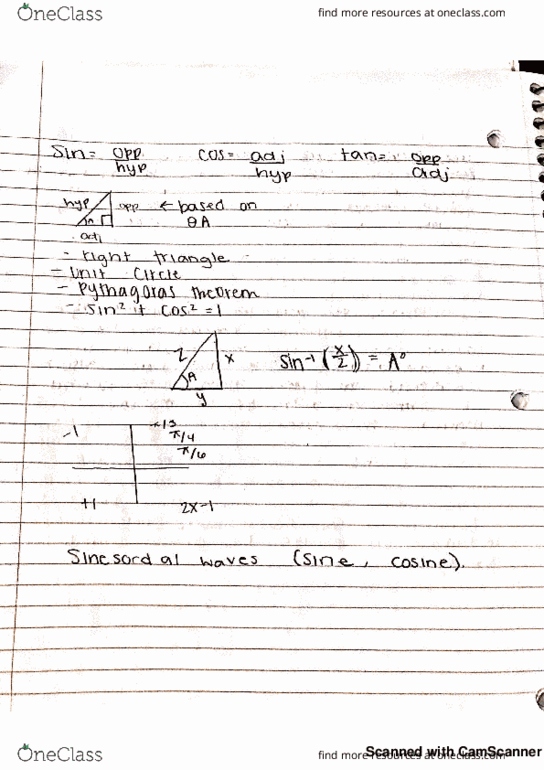 OneClass find more resources at oneclass.com
Sin = opp/hyp cos = adj/hyp tan = opp/adj
hyp opp ← based on
A θA
adj
- right triangle
- Unit Circle
- Pythagoras theorem
- Sin² + cos² = 1
z x
A
y
Sin⁻¹ (x/z) = A°
-1
π/4
π/6
+1 2x-1
Sinesordal waves (Sine, cosine).
OneClass find more resources at oneclass.com
Scanned with CamScanner